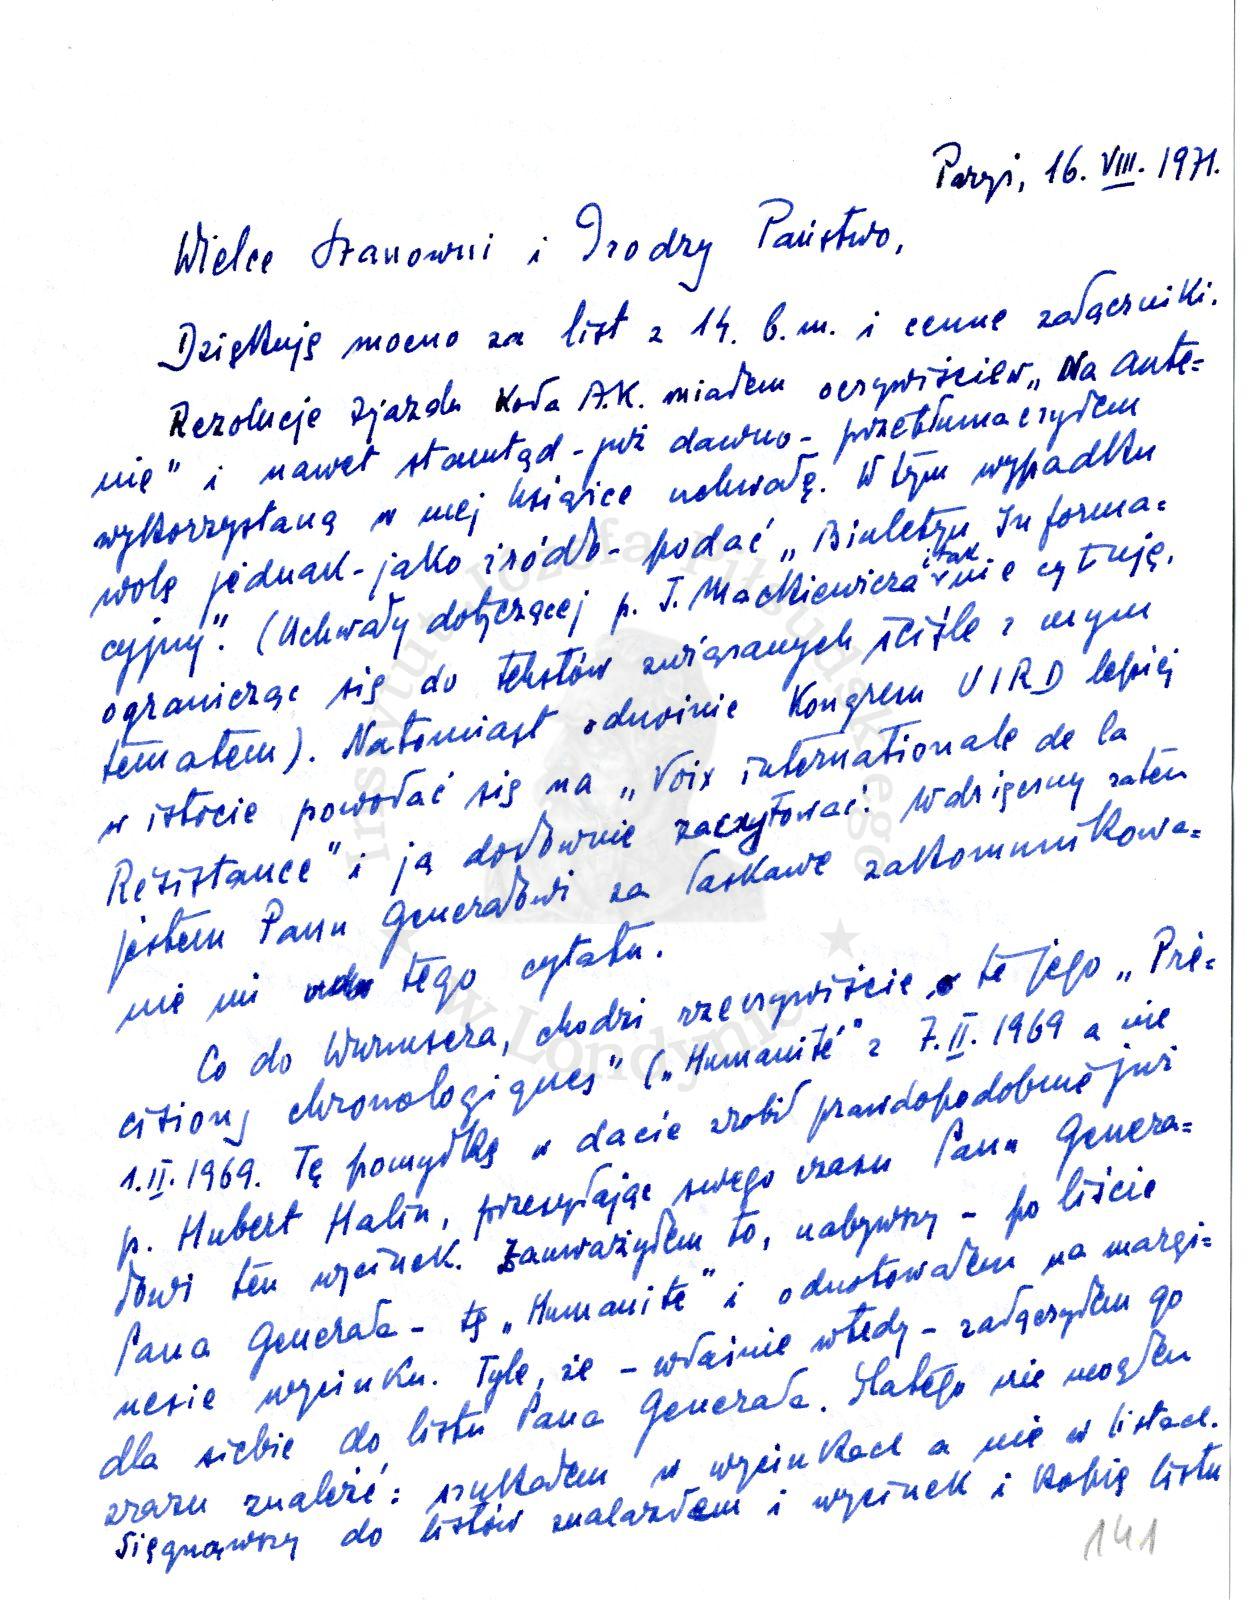 Paryż, 16. VIII. 1971.
Wielce Szanowni i Drodzy Państwo,
Dziękuję mocno za list z 14. b.m. i cenne załączniki.
Rezolucje Zjazdu Koła A.K. miałem oczywiście w „Na ante=
nie" i nawet stamtąd - już dawno - przetłumaczyłem
wykorzystaną w mej książce uchwałę. W tym wypadku
wolę jednak - jako źródło - podać „Biuletyn Informa=
cyjny". (Uchwały dotyczącej p. J. Mackiewicza i tak nie cytuję,
ograniczając się do tekstów związanych ściśle z mym
tematem). Natomiast odnośnie Kongresu UIRD lepiej
w istocie powołać się na „Voix internationale de la
Résistance" i ją dosłownie zacytować. Wdzięczny zatem
jestem Panu Generałowi za łaskawe zakomunikowa=
nie mi tego cytatu.
Co do Wurmsera, chodzi rzeczywiście o te jego „Pré=
cisions chronologiques" („Humanité" z 7.II.1969 a nie
1.II.1969. Tę pomyłkę w dacie zrobił prawdopodobnie już
p. Hubert Halin, przesyłając swego czasu Panu Genera=
łowi ten wycinek. Zauważyłem to, nabywszy - po liście
Pana Generała - tę „Humanité" i odnotowałem na margi=
nesie wycinku. Tyle, że - właśnie wtedy - załączyłem go
dla siebie do listu Pana Generała. Dlatego nie mogłem
zrazu znaleźć: szukałem w wycinkach a nie w listach.
Sięgnąwszy do listów znalazłem i wycinek i kopię listu
141
Instytut Józefa Piłsudskiego
w Londynie